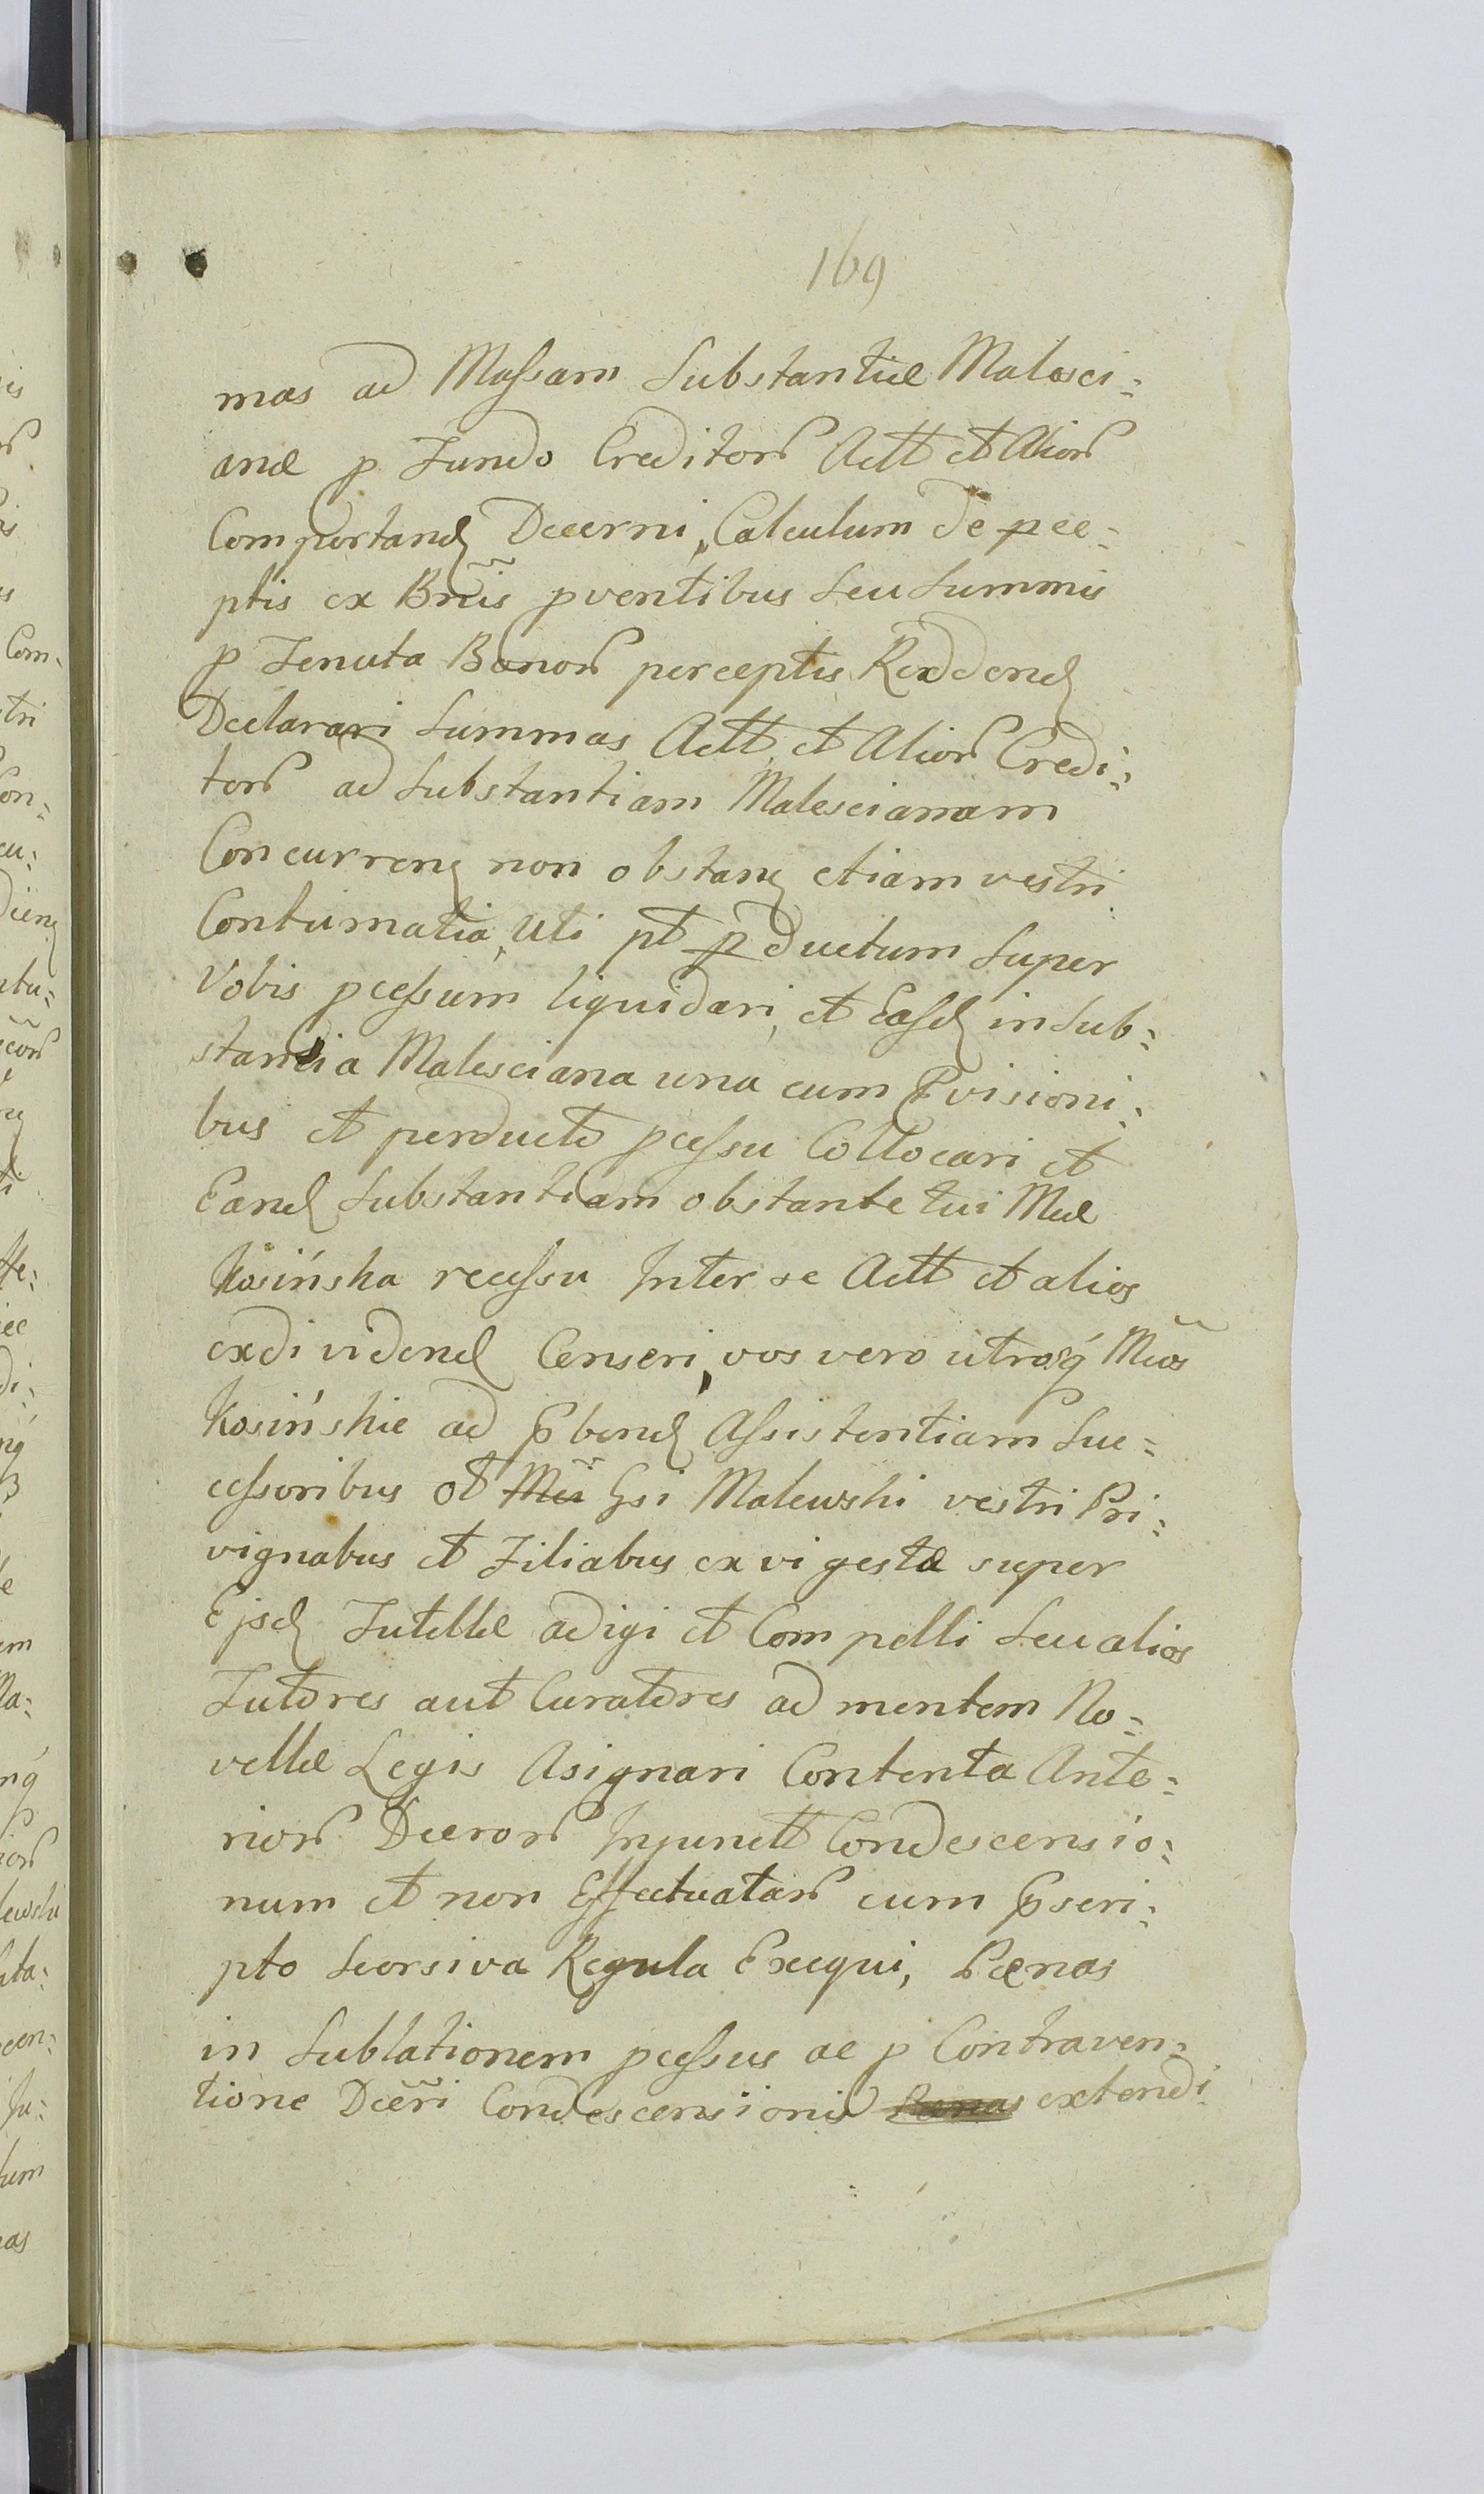 169
mas ad Massam Substantiæ Malesci=
anæ p Fundo Creditorũ Actt et Aliorũ
Comportand Decerni, Calculum de pce=
ptis ex Bnĩs pventibus seu Summis
p Tenuta Bonorũ perceptis Reddend
Declarari Summas Actt, et Aliorũ Credi=
torũ ad Substantiam Malescianam
Concurren non obstan etiam vestri
Contumatia, uti pt pductum super
Vobis pcessum liquidari, et Easd in Sub=
stantia Malesciana una cum Pvisioni=
bus et perducto pcessu Collocari et
Eand Substantiam obstante tui Mcæ
Kosińska recessu Inter se Actt et alios
exdividend Censeri, vos vero utrosq́ Mcos
Kosińskie ad pbend Assistentiam Suc=
cessoribus ot Mci Gsi Malewski vestri Pri=
vignabus et Filiabus ex vi gestæ super
Ejsd Tutellæ adigi et Compelli Seu alios
Tutores aut Curatores ad mentem No=
vellæ Legis Asignari Contenta Ante=
riorũ Dcerorũ Injunctt Condescensio=
num et non Effectuatarũ cum pscri=
pto seorsiva Regula Exequi, Pænas
in Sublationem pcessus ac p Contraven=
tione Dcẽri Condescensionis Pænas extendi